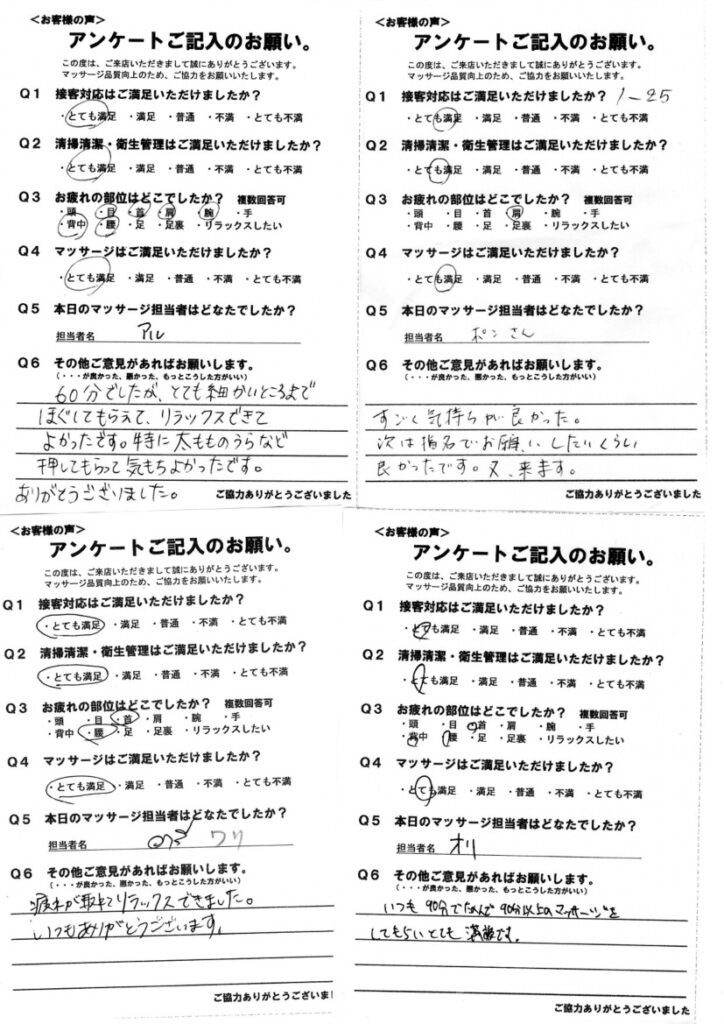 ＜お客様の声＞
アンケートご記入のお願い。
この度は、ご来店いただきまして誠にありがとうございます。
マッサージ品質向上のため、ご協力をお願いいたします。
Q1 接客対応はご満足いただけましたか？
・とても満足 ・満足 ・普通 ・不満 ・とても不満
Q2 清掃清潔・衛生管理はご満足いただけましたか？
・とても満足 ・満足 ・普通 ・不満 ・とても不満
Q3 お疲れの部位はどこでしたか？ 複数回答可
・頭 ・目 ・首 ・肩 ・腕 ・手
・背中 ・腰 ・足 ・足裏 ・リラックスしたい
Q4 マッサージはご満足いただけましたか？
・とても満足 ・満足 ・普通 ・不満 ・とても不満
Q5 本日のマッサージ担当者はどなたでしたか？
担当者名 アル
Q6 その他ご意見があればお願いします。
（・・・が良かった、悪かった、もっとこうした方がいい）
60分でしたが、とても細かいところまで
ほぐしてもらえて、リラックスできて
よかったです。特に太もものうらなど
押してもらって気もちよかったです。
ありがとうございました。
ご協力ありがとうございました
＜お客様の声＞
アンケートご記入のお願い。
この度は、ご来店いただきまして誠にありがとうございます。
マッサージ品質向上のため、ご協力をお願いいたします。
Q1 接客対応はご満足いただけましたか？ 1-25
・とても満足 ・満足 ・普通 ・不満 ・とても不満
Q2 清掃清潔・衛生管理はご満足いただけましたか？
・とても満足 ・満足 ・普通 ・不満 ・とても不満
Q3 お疲れの部位はどこでしたか？ 複数回答可
・頭 ・目 ・首 ・肩 ・腕 ・手
・背中 ・腰 ・足 ・足裏 ・リラックスしたい
Q4 マッサージはご満足いただけましたか？
・とても満足 ・満足 ・普通 ・不満 ・とても不満
Q5 本日のマッサージ担当者はどなたでしたか？
担当者名 ポンさん
Q6 その他ご意見があればお願いします。
（・・・が良かった、悪かった、もっとこうした方がいい）
すごく気持ちが良かった。
次は指名でお願いしたいくらい
良かったです。又、来ます。
ご協力ありがとうございました
＜お客様の声＞
アンケートご記入のお願い。
この度は、ご来店いただきまして誠にありがとうございます。
マッサージ品質向上のため、ご協力をお願いいたします。
Q1 接客対応はご満足いただけましたか？
・とても満足 ・満足 ・普通 ・不満 ・とても不満
Q2 清掃清潔・衛生管理はご満足いただけましたか？
・とても満足 ・満足 ・普通 ・不満 ・とても不満
Q3 お疲れの部位はどこでしたか？ 複数回答可
・頭 ・目 ・首 ・肩 ・腕 ・手
・背中 ・腰 ・足 ・足裏 ・リラックスしたい
Q4 マッサージはご満足いただけましたか？
・とても満足 ・満足 ・普通 ・不満 ・とても不満
Q5 本日のマッサージ担当者はどなたでしたか？
担当者名 ワリ
Q6 その他ご意見があればお願いします。
（・・・が良かった、悪かった、もっとこうした方がいい）
疲れが取れてリラックスできました。
いつもありがとうございます。
ご協力ありがとうございまし
＜お客様の声＞
アンケートご記入のお願い。
この度は、ご来店いただきまして誠にありがとうございます。
マッサージ品質向上のため、ご協力をお願いいたします。
Q1 接客対応はご満足いただけましたか？
・とても満足 ・満足 ・普通 ・不満 ・とても不満
Q2 清掃清潔・衛生管理はご満足いただけましたか？
・とても満足 ・満足 ・普通 ・不満 ・とても不満
Q3 お疲れの部位はどこでしたか？ 複数回答可
・頭 ・目 ・首 ・肩 ・腕 ・手
・背中 ・腰 ・足 ・足裏 ・リラックスしたい
Q4 マッサージはご満足いただけましたか？
・とても満足 ・満足 ・普通 ・不満 ・とても不満
Q5 本日のマッサージ担当者はどなたでしたか？
担当者名 オリ
Q6 その他ご意見があればお願いします。
（・・・が良かった、悪かった、もっとこうした方がいい）
いつも90分でたのんで90分以上のマッサージを
してもらいとても満足です。
ご協力ありがとうございました